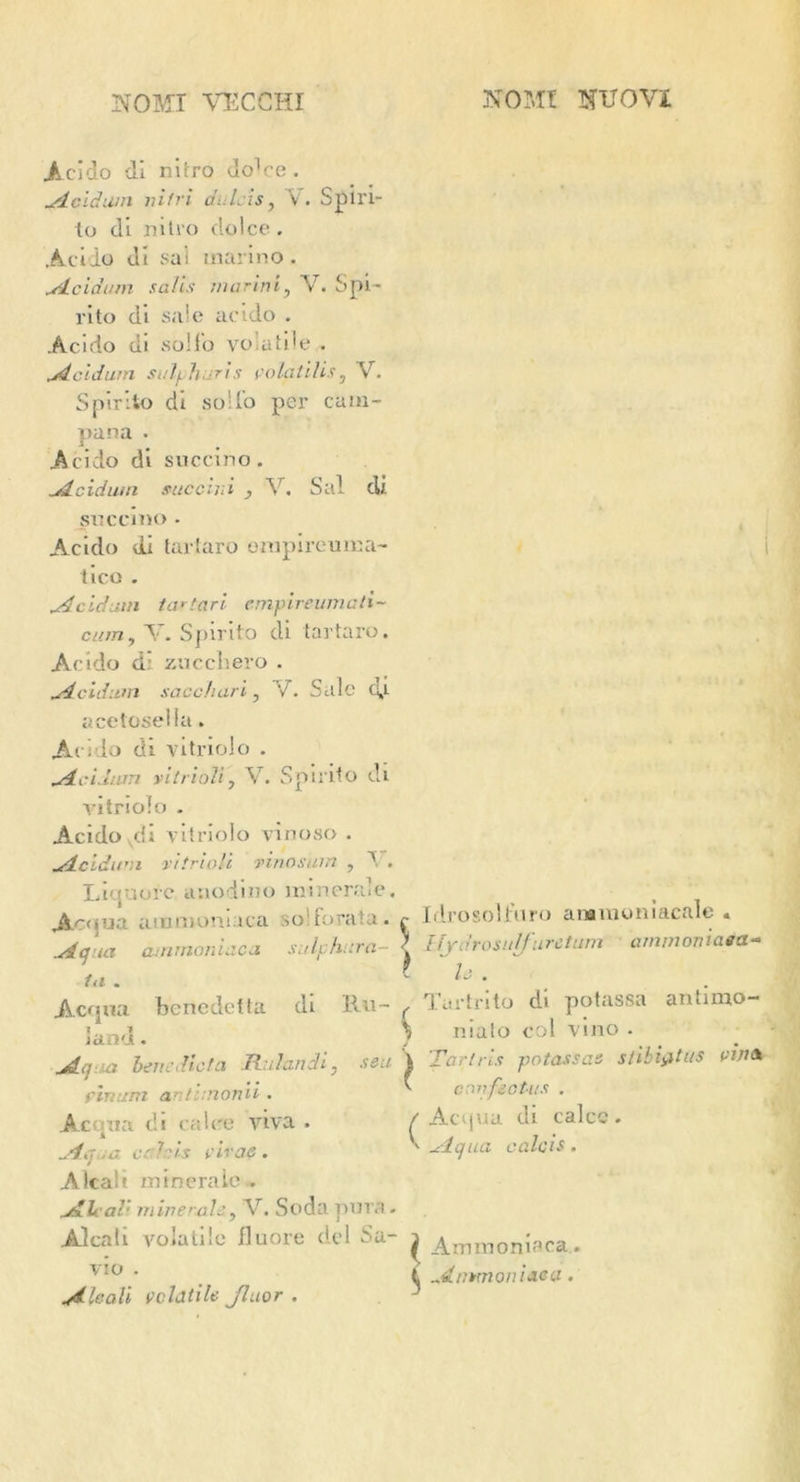 NOMI VECCHI
Acido di nitro dolce.
Acidum nitri dulcis, V. Spiri-
to di nitro dolce.
Acido di sal marino.
Acidum salis marini, V. Spi-
rito di sale acido.
Acido di solfo volatile.
Acidum sulphuris volatilis, V.
Spirito di solfo per cam-
pana.
Acido di succino.
Acidum succini, V. Sal di
succino.
Acido di tartaro empireuma-
tico.
Acidum tartari empireumati-
cum, V. Spirito di tartaro.
Acido di zucchero.
Acidum sacchari, V. Sale di
acetosella.
Acido di vitriolo.
Acidum vitrioli, V. Spirito di
vitriolo.
Acido di vitriolo vinoso.
Acidum vitrioli vinosum, V.
Liquore anodino minerale.
Acqua ammoniaca solforata.
Aqua ammoniaca sulphura-
ta.
Acqua benedetta di Ru-
land.
Aqua benedicta Rulandi, seu
vinum antimonii.
Acqua di calce viva.
Aqua calcis vivae.
Alcali minerale.
Alcali minerale, V. Soda pura.
Alcali volatile fluore del Sa-
vio.
Alcali volatile fluor.
NOMI NUOVI
Idrosolfuro ammoniacale.
Hydrosulfuretum ammoniaca-
le.
Tartrito di potassa antimo-
niato col vino.
Tartris potassae stibiatus vina
confectus.
Acqua di calce.
Aqua calcis.
Ammoniaca.
Ammoniaca.